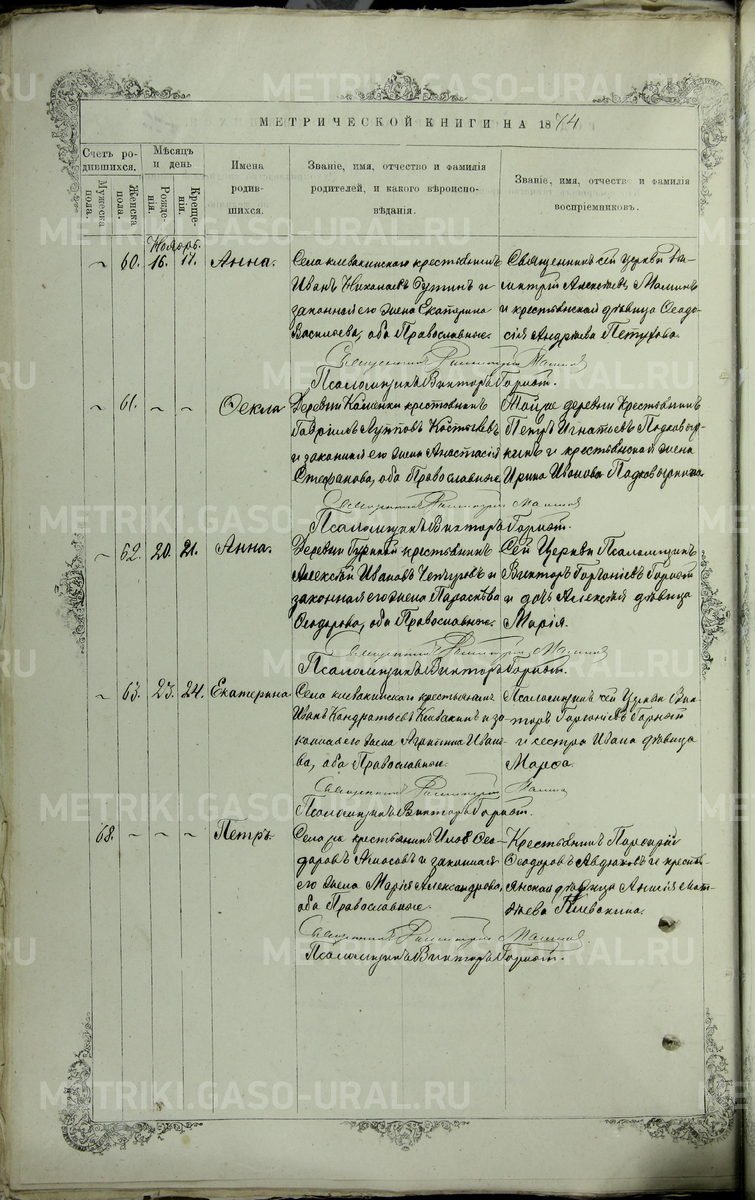 METRIKI.GASO-URAL.RU
МЕТРИЧЕСКОЙ КНИГИ НА 1874
Счетъ родившихся.
Мужеска пола.
Женска пола.
Мѣсяцъ и день
Рожденія.
Крещенія.
Имена родившихся.
Званіе, имя, отчество и фамилія родителей, и какого вѣроисповѣданія.
Званіе, имя, отчество и фамилія воспріемниковъ.
Ноябрь.
~ 60. 16. 17. Анна.
Села клевакинскаго крестьянинъ
Иванъ Николаевъ и
законная его жена Екатерина
Василоева, оба Православные.
Священникъ сей церкви Ди-
митрій Алексѣевъ Маминъ
и крестьянская дѣвица Ѳеодо-
сія Андрѣева Пѣтухова.
Священникъ Димитрій Маминъ
Псаломщикъ Викторъ
~ 61. ~ ~ Ѳекла
Деревни Каменки крестьянинъ
Гавріилъ
и законная его жена Анастасія
Стефанова, оба Православные
Той же деревни Крестьянинъ
Петръ Игнатіевъ Подковыр-
кинъ и крестьянская жена
Ирина Иванова Подковыркина.
Священникъ Димитрій Маминъ
Псаломщикъ Викторъ
~ 62. 20. 21. Анна.
Деревни крестьянинъ
Алексѣй Ивановъ Чепчуговъ и
законная его жена Параскева
Ѳеодорова, оба Православные.
Сей Церкви Псаломщикъ
Викторъ
и дочь Алексія дѣвица
Марія.
Священникъ Димитрій Маминъ
Псаломщикъ Викторъ
~ 63. 23. 24. Екатерина
Села клевакинскаго крестьянинъ
Иванъ Кондратьевъ Клевакинъ и за-
конная его жена Агрипина Ивано-
ва, оба Православные.
Псаломщикъ сей Церкви Вик-
торъ
и сестра Ивана дѣвица
Марѳа.
Священникъ Димитрій Маминъ
Псаломщикъ Викторъ
68. ~ ~ ~ Петръ.
Села крестьянинъ Ѳео-
доровъ и законная
его жена Марія Александрова,
оба Православные.
Крестьянинъ Порфирій
Ѳеодоровъ Авдюковъ и кресть-
янская дѣвица Анисія Мат-
ѳѣева Клевакина.
Священникъ Димитрій Маминъ.
Псаломщикъ Викторъ